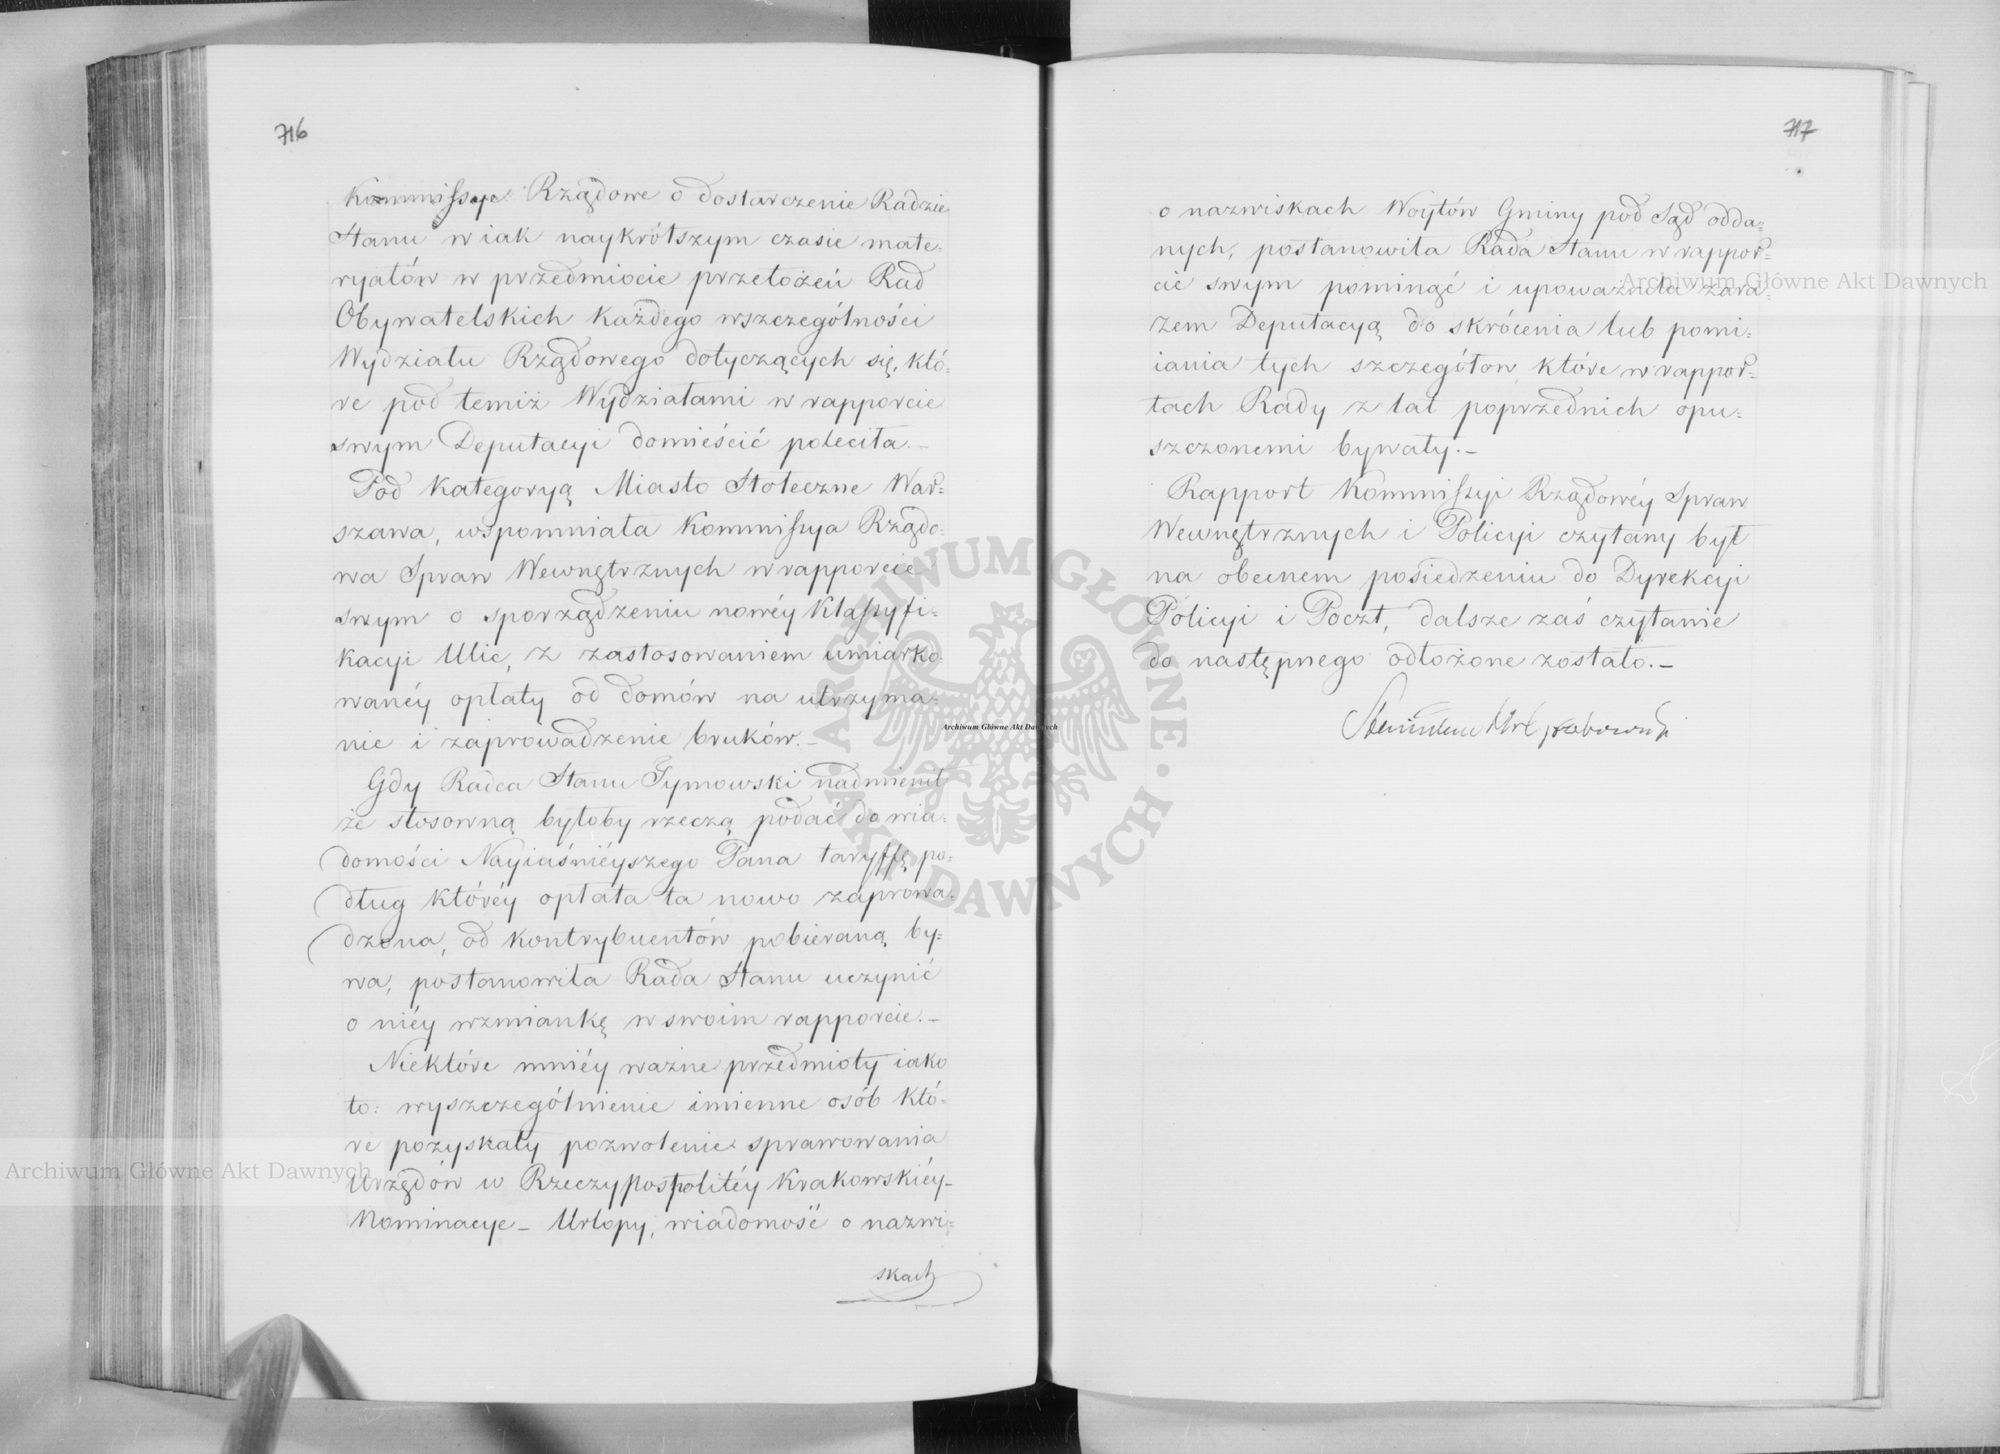 716
Kommissye Rządowe o dostarczenie Radzie
Stanu w iak naykrótszym czasie mate=
ryałów w przedmiocie przełożeń Rad
Obywatelskich każdego wszczególności
Wydziału Rządowego dotyczących się, któ=
re pod temiż Wydziałami w rapporcie
swym Deputacyi domieścić poleciła.–
Pod kategoryą Miasto Stołeczne War=
szawa, wspomniała Kommissya Rządo=
wa Spraw Wewnętrznych w rapporcie
swym o sporządzeniu nowéy klassyfi=
kacyi Ulic, z zastosowaniem umiarko=
wanéy opłaty od domów na utrzyma=
nie i zaprowadzenie bruków.–
Gdy Radca Stanu Tymowski nadmienił
że stosowną byłoby rzeczą podać do wia=
domości Nayiaśniéyszego Pana taryffę po=
dług któréy opłata ta nowo zaprowa=
dzona, od kontrybuentów pobieraną by=
wa, postanowiła Rada Stanu uczynić
o niéy wzmiankę w swoim rapporcie.–
Niektóre mniéy ważne przedmioty iako
to: wyszczególnienie imienne osób któ=
re pozyskały pozwolenie sprawowania
Urzędów w Rzeczypospolitéy Krakowskiéy–
Nominacye– Urlopy, wiadomość o nazwi=
skach
717
o nazwiskach Woytów Gminy pod Sąd odda=
nych, postanowiła Rada Stanu w rappor=
cie swym pominąć i upoważniła zara=
zem Deputacyą do skrócenia lub pomi=
iania tych szczegółow, które w rappor=
tach Rady z lat poprzednich opu=
szczonemi bywały.–
Rapport Kommissyi Rządowéy Spraw
Wewnętrznych i Policyi czytany był
na obecnem posiedzeniu do Dyrekcyi
Policyi i Poczt, dalsze zaś czytanie
do następnego odłożone zostało.–
Archiwum Główne Akt Dawnych
Archiwum Główne Akt Dawnych
Archiwum Główne Akt Dawnych
ARCHIWUM GŁÓWNE · AKT DAWNYCH ·